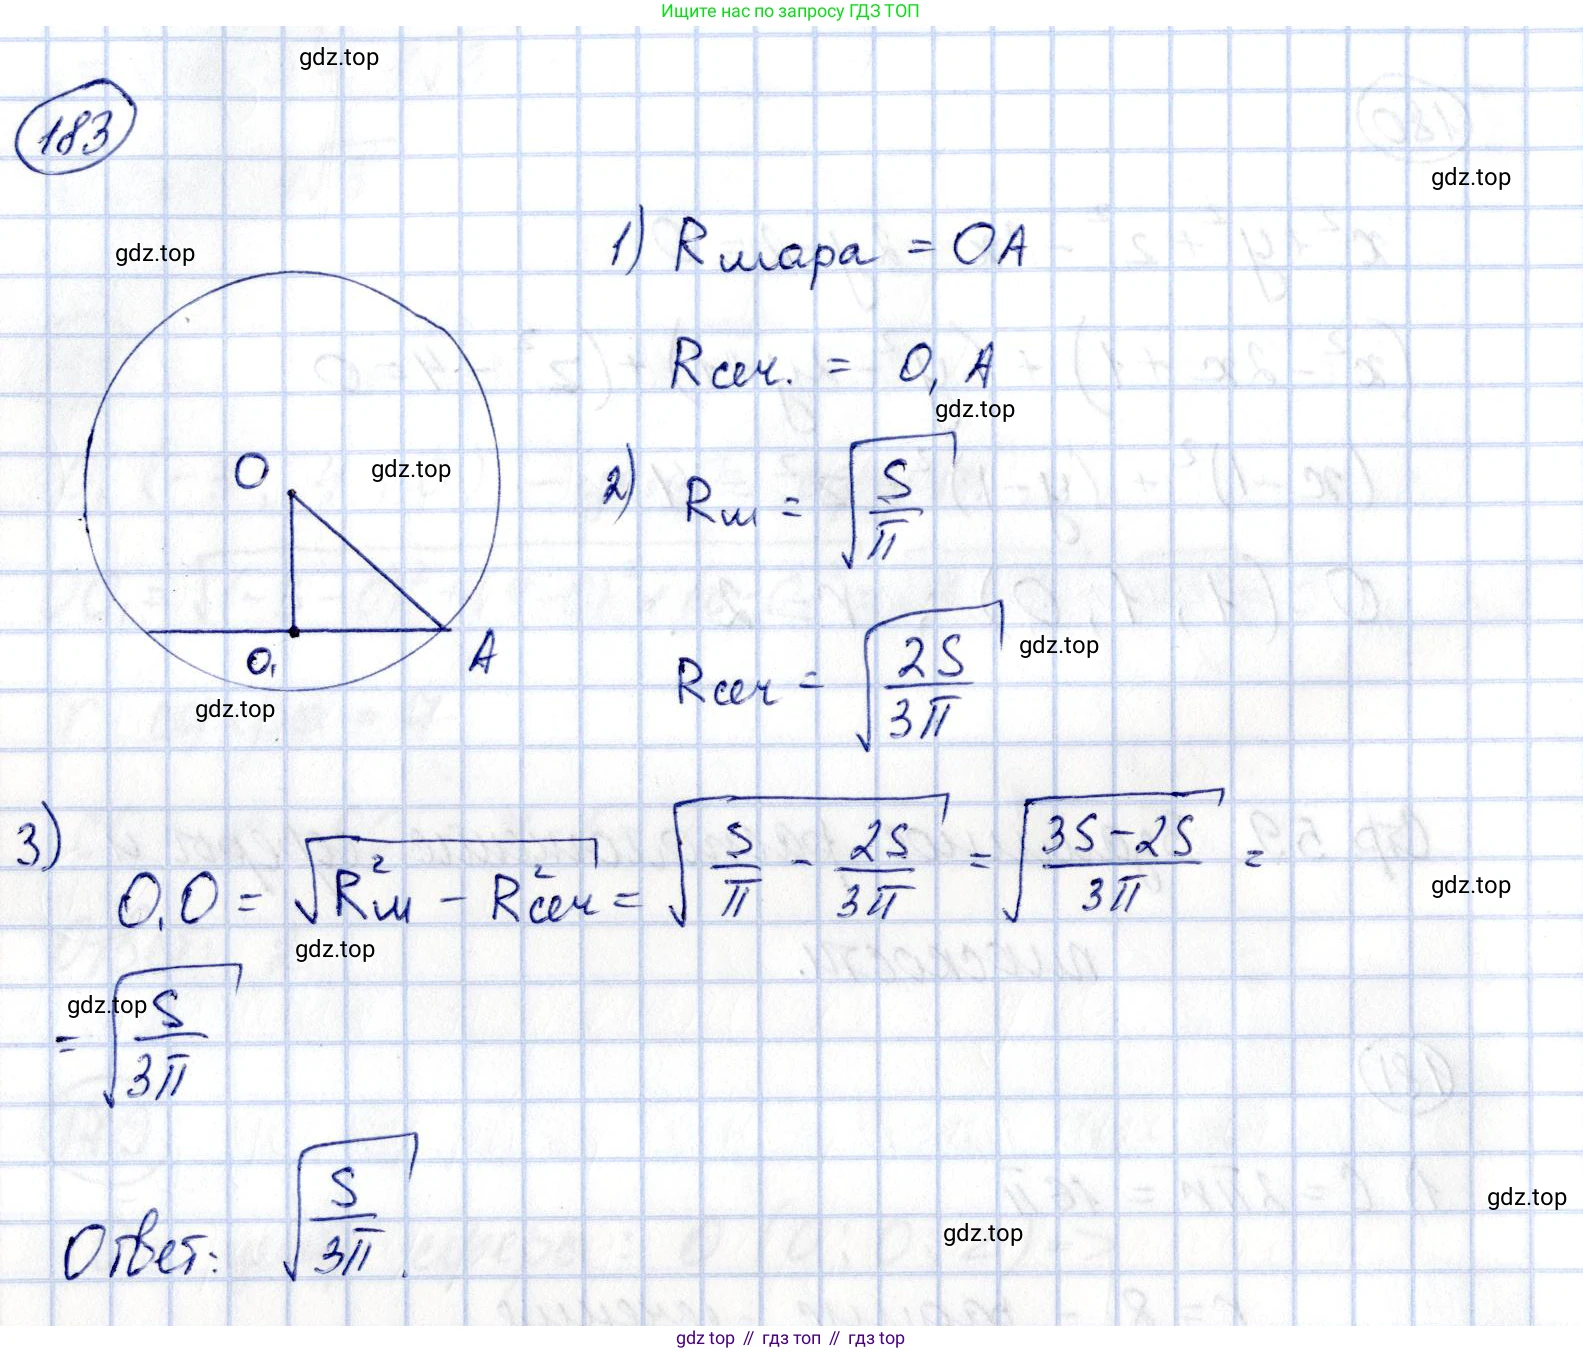 Ищите нас по запросу ГДЗ ТОП
gdz.top
183
gdz.top
gdz.top
1) Rшара = OA
Rсеч. = O₁A
gdz.top
O
gdz.top
2) Rш = √(S/π)
O₁
A
gdz.top
Rсеч = √(2S/3π)
gdz.top
3)
O₁O = √(R²ш – R²сеч) = √(S/π – 2S/3π) = √((3S–2S)/3π) =
gdz.top
gdz.top
gdz.top
= √(S/3π)
gdz.top
Ответ: √(S/3π).
gdz.top
gdz top // гдз топ // гдз top